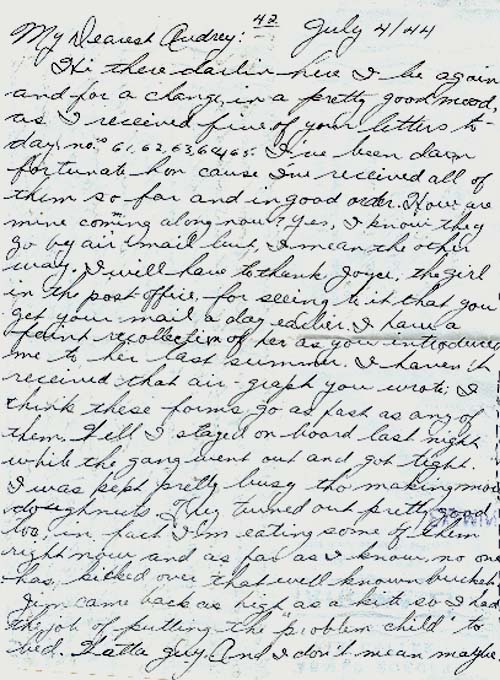 42 July 4/44
My Dearest Audrey:
Hi there darlin here I be again
and for a change, in a pretty good mood,
as I received five of your letters to-
day, no.s 61, 62, 63, 64, 65. I've been darn
fortunate hon cause I've received all of
them so far and in good order. How are
mine coming along now? Yes, I know they
go by air mail but, I mean the other
way. I will have to thank Joyce, the girl
in the post office, for seeing to it that you
get your mail a day earlier. I have a
faint recollection of her as you introduced
me to her last summer. I haven't
received that air-graph you wrote; I
think these forms go as fast as any of
them. Well I stayed on board last night
while the gang went out and got tight.
I was kept pretty busy tho making more
doughnuts. They turned out pretty good
too, in fact I'm eating some of them
right now and as far as I know, no one
has kicked over that well known bucket.
Jim came back as high as a kite so I had
the job of putting the "problem child" to
bed. Whatta guy. And I don't mean maybe.